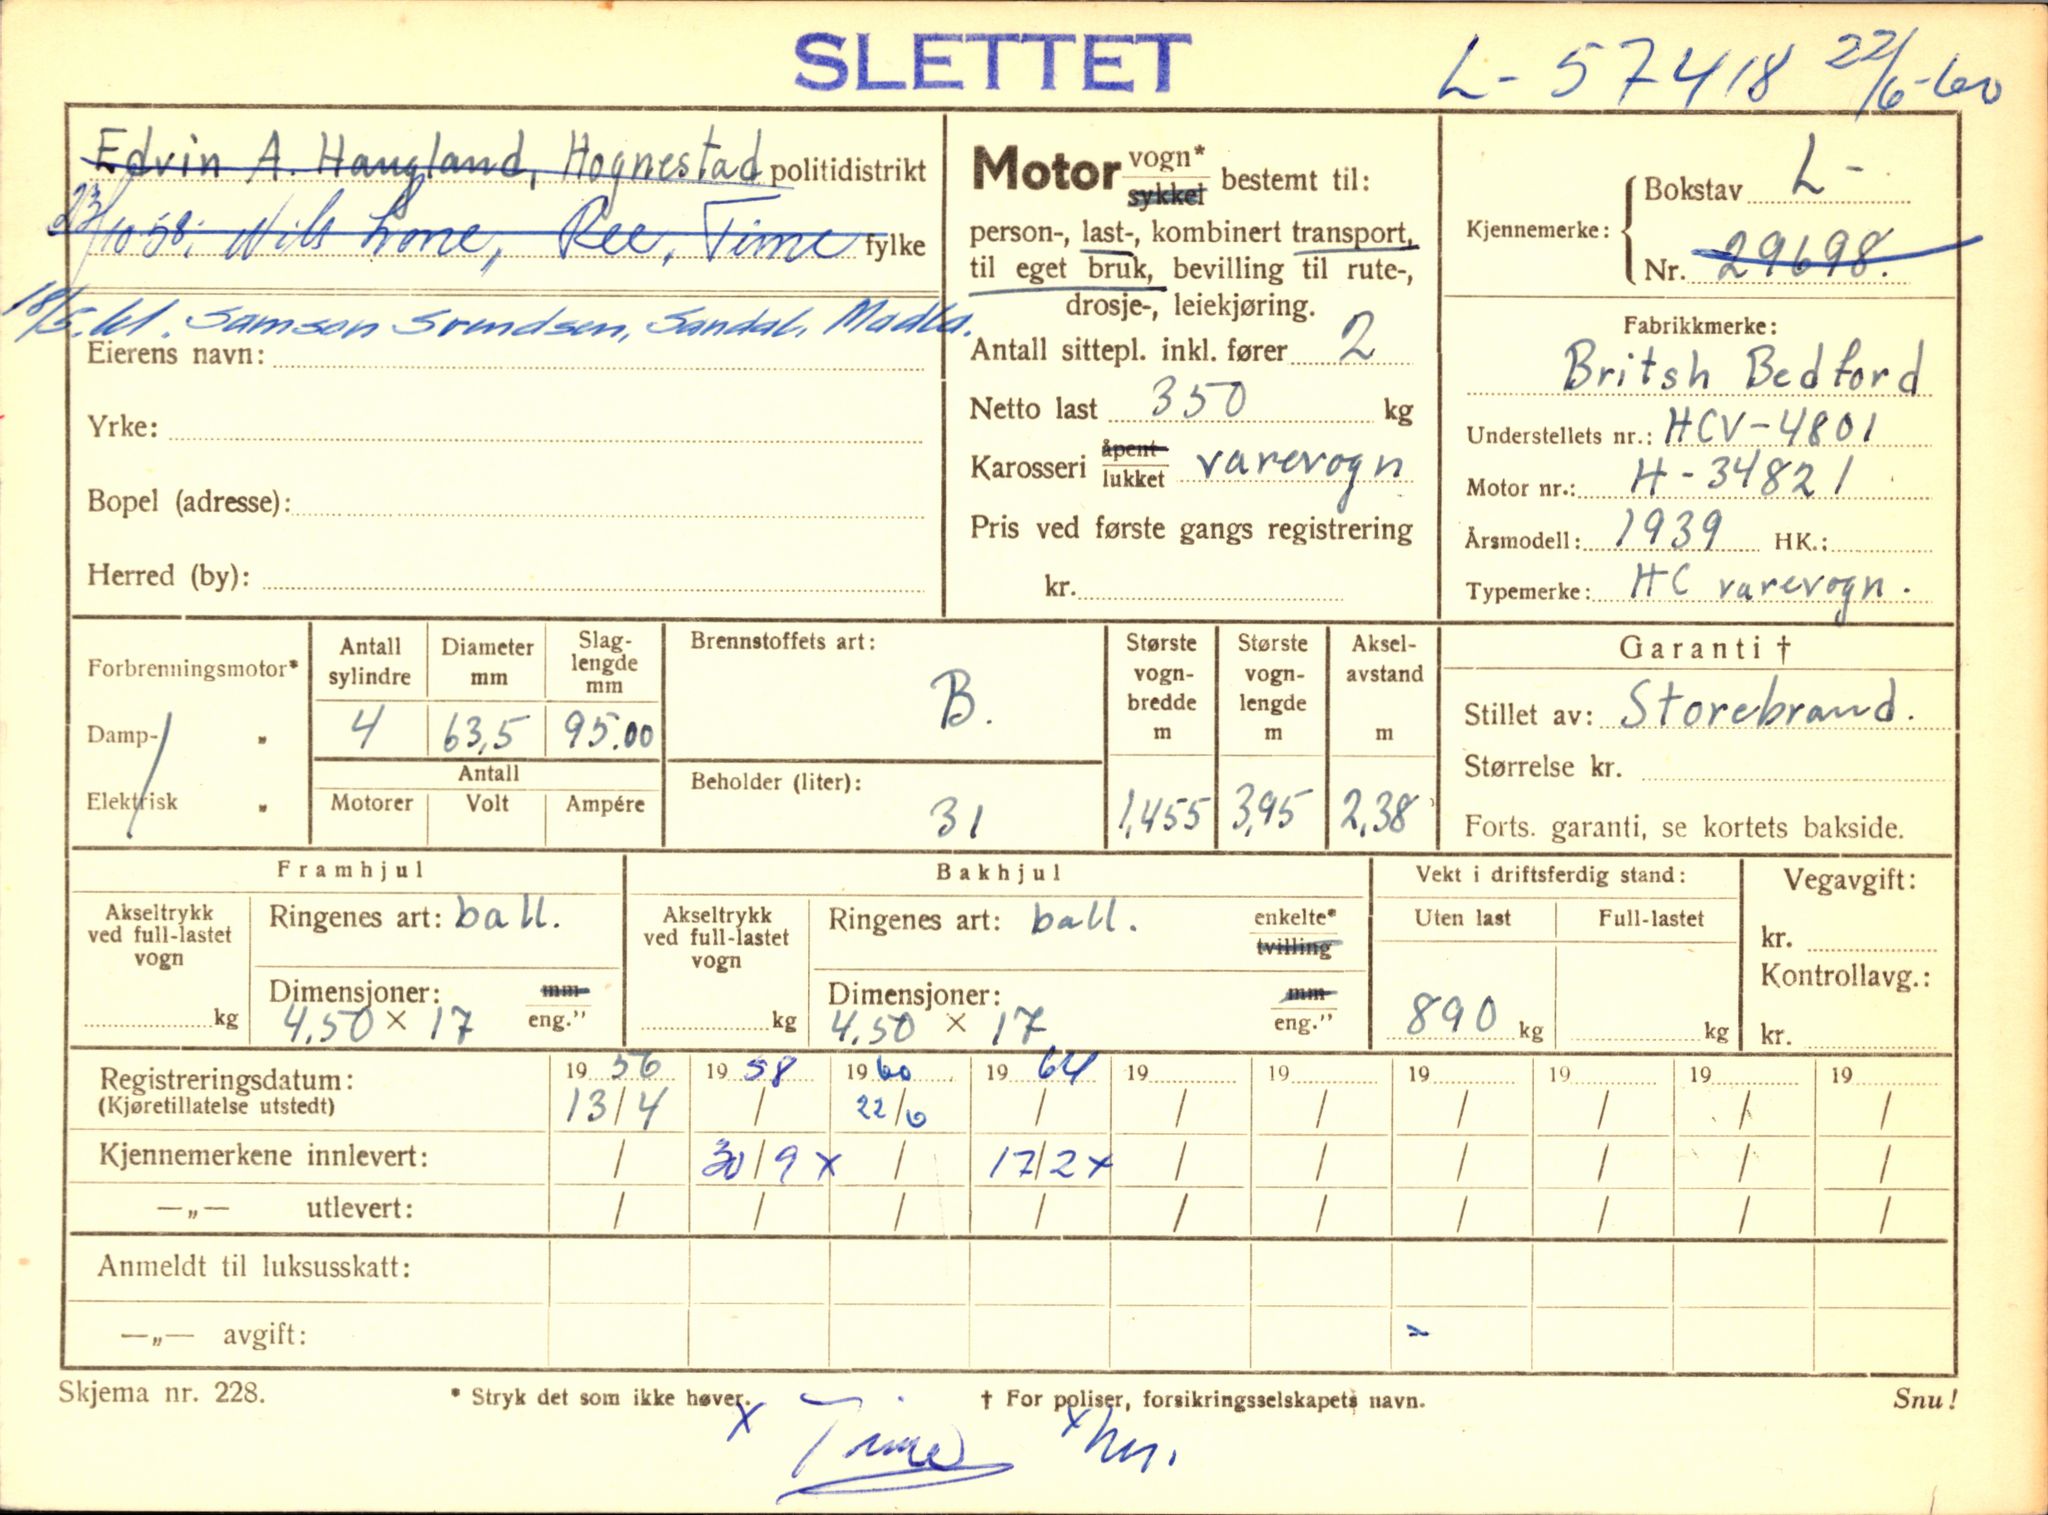 SLETTET
L- 57418 22/6-60
Edvin A. Haugland, Hognestad politidistrikt
23/10 58: Nils Lone, Ree, Time fylke
18/5.61. Samson Svendsen, Sandal, Madla.
Eierens navn:
Yrke:
Bopel (adresse):
Herred (by):
Motor vogn* sykkel bestemt til:
person-, last-, kombinert transport,
til eget bruk, bevilling til rute-,
drosje-, leiekjøring.
Antall sittepl. inkl. fører 2
Netto last 350 kg
Karosseri åpent lukket varevogn
Pris ved første gangs registrering
kr.
Kjennemerke: Bokstav L-
Nr. 29698.
Fabrikkmerke:
Britsh Bedford
Understellets nr.: HCV-4801
Motor nr.: H-34821
Årsmodell: 1939 HK.:
Typemerke: HC varevogn.
Forbrenningsmotor*
Damp- „
Elektrisk „
Antall sylindre
Diameter mm
Slag-lengde mm
4 63,5 95.00
Antall
Motorer Volt Ampére
Brennstoffets art:
B.
Beholder (liter):
31
Største vogn-bredde m
1,455
Største vogn-lengde m
3,95
Aksel-avstand m
2,38
Garanti †
Stillet av: Storebrand.
Størrelse kr.
Forts. garanti, se kortets bakside.
Framhjul
Akseltrykk ved full-lastet vogn
kg
Ringenes art: ball.
Dimensjoner: mm
4,50 × 17 eng.”
Bakhjul
Akseltrykk ved full-lastet vogn
kg
Ringenes art: ball. enkelte* tvilling
Dimensjoner: mm
4,50 × 17 eng.”
Vekt i driftsferdig stand:
Uten last Full-lastet
890 kg kg
Vegavgift:
kr.
Kontrollavg.:
kr.
Registreringsdatum: 19 56 19 58 19 60 19 64 19 19 19 19 19 19
(Kjøretillatelse utstedt) 13/4 / 22/6 / / / / / / /
Kjennemerkene innlevert: / 30/9 x / 17/2 x / / / / / /
—„— utlevert: / / / / / / / / / /
Anmeldt til luksusskatt:
—„— avgift:
Skjema nr. 228.
* Stryk det som ikke høver.
† For poliser, forsikringsselskapets navn.
Snu!
x Time x